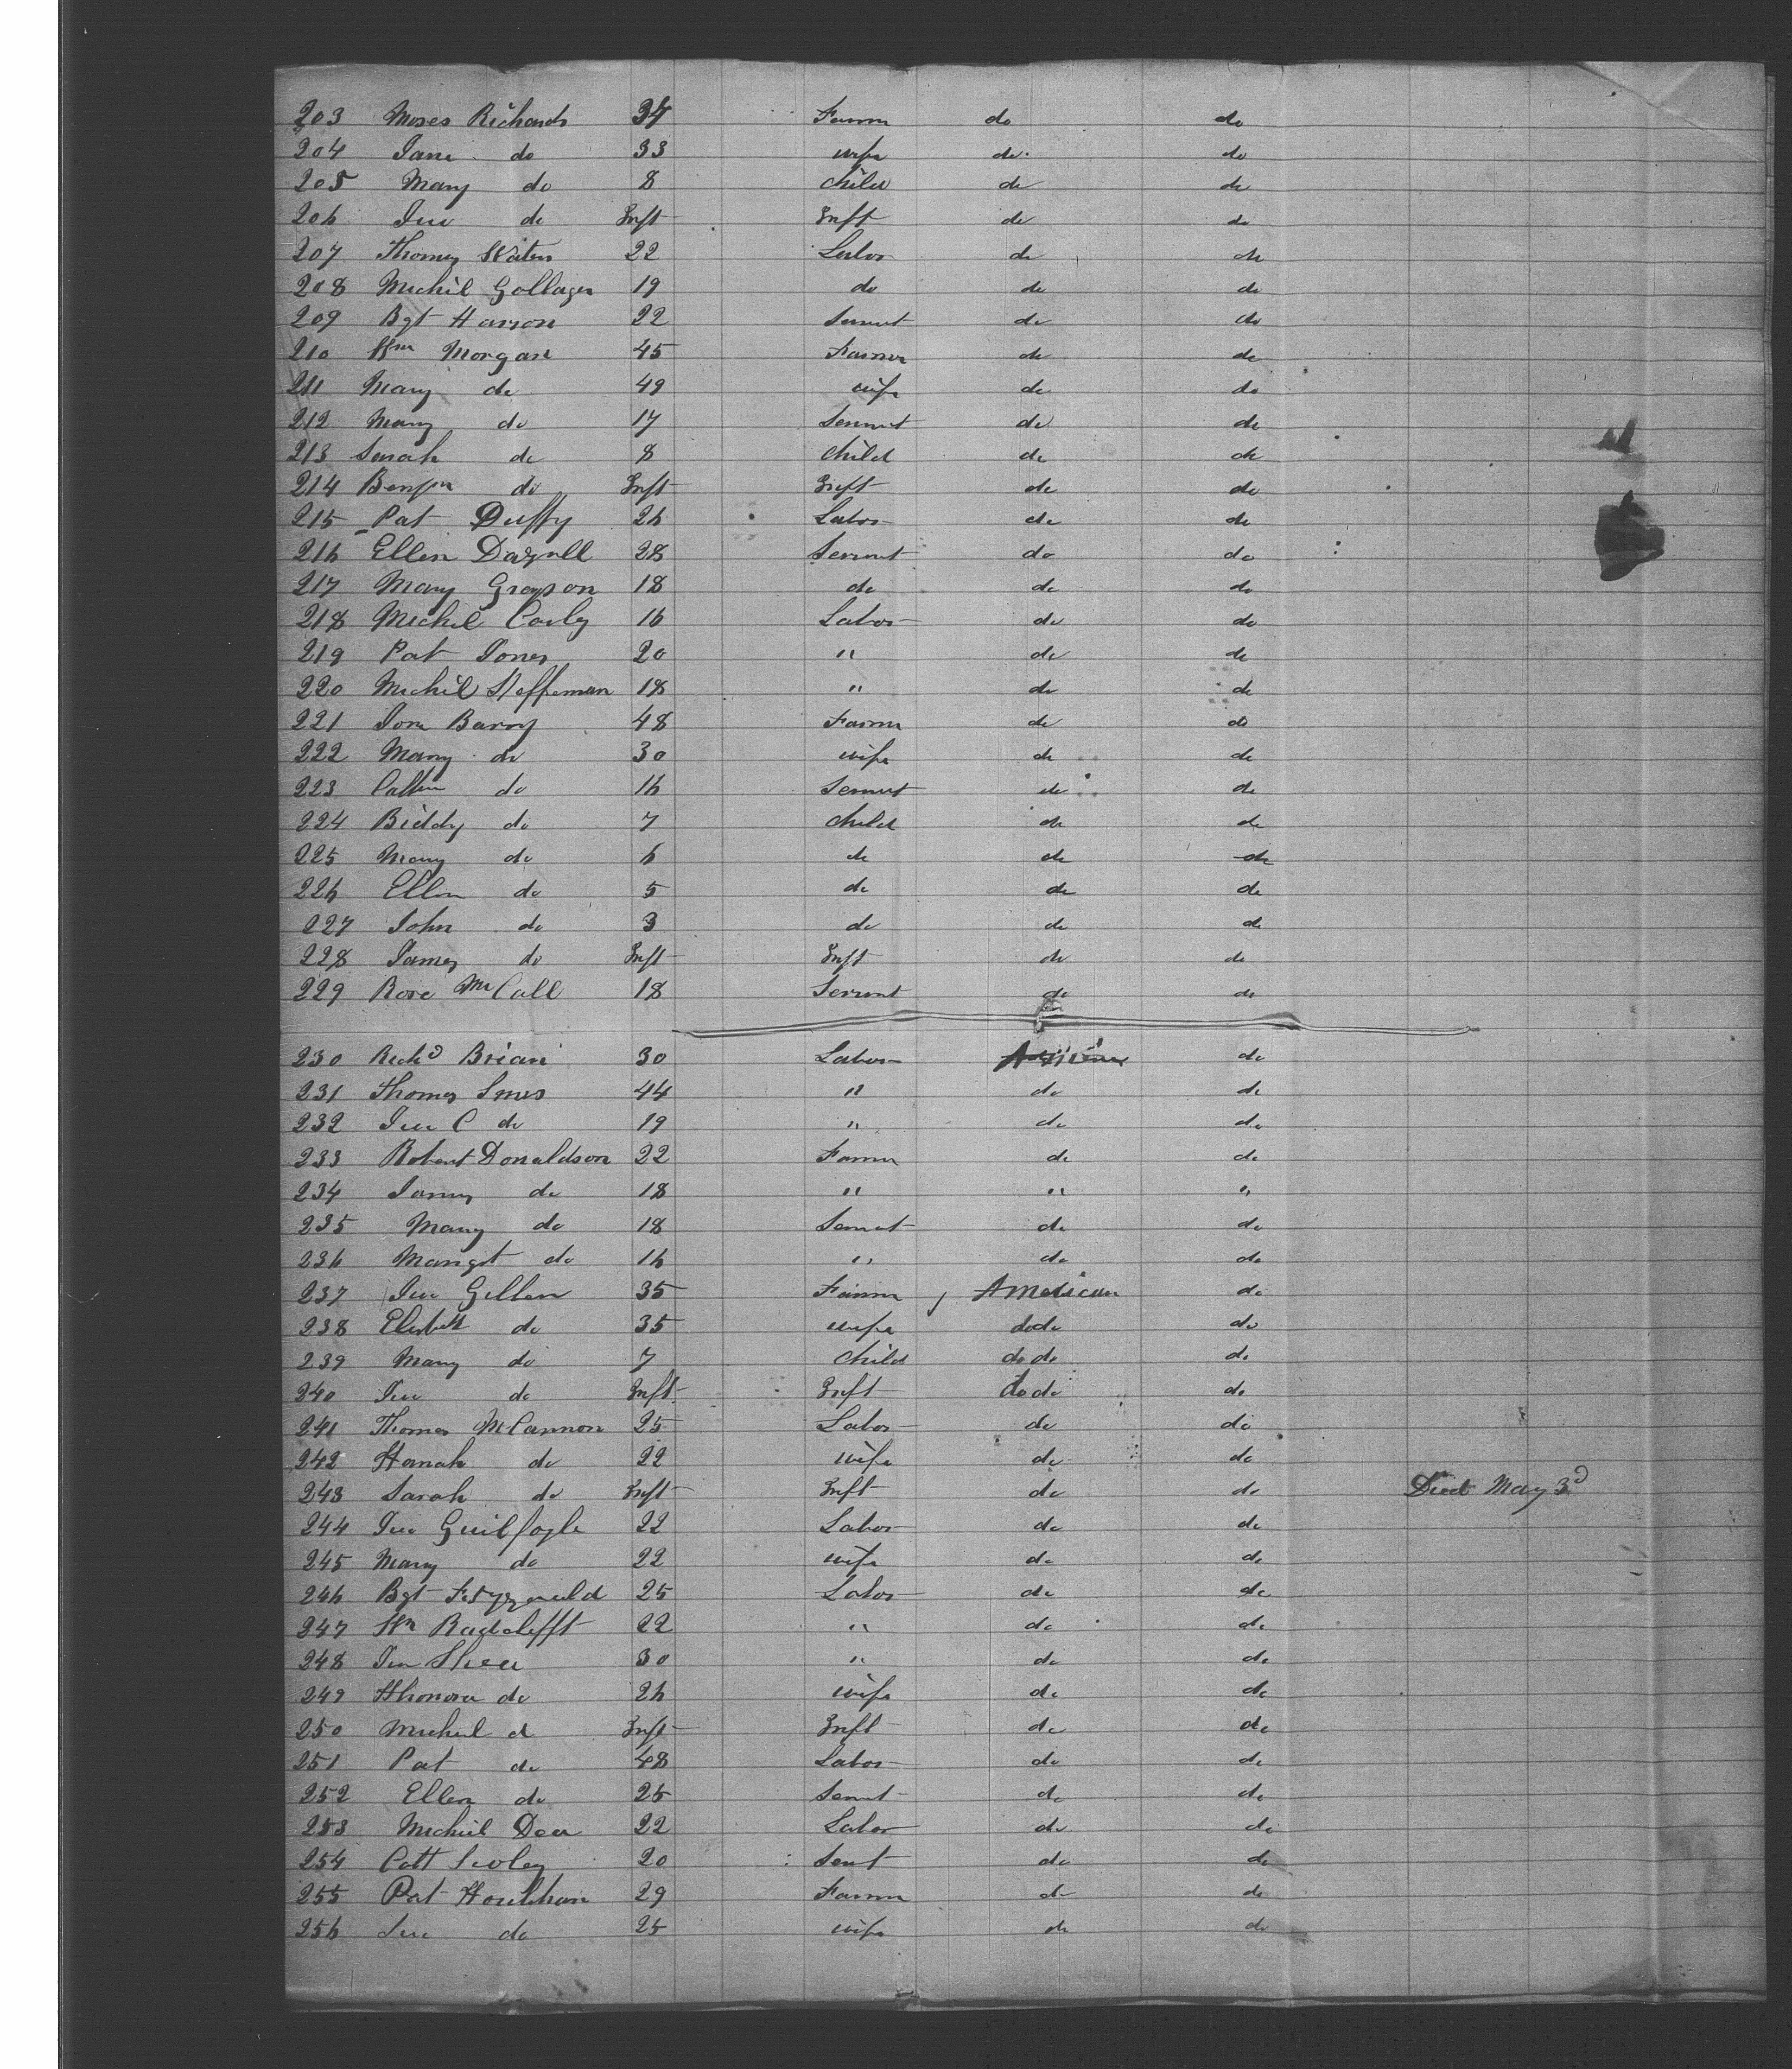 203 Moses Richards 34 Farmr do do
204 Jane do 33 wife do do
205 Mary do 8 child do do
206 Jno do Inft Inft do do
207 Thomas Waters 22 Labor do do
208 Michil Gollager 19 do do do
209 Bgt 22 Servnt do do
210 Wm Morgan 45 Farmer do do
211 Mary do 49 wife do do
212 Mary do 17 Servnt do do
213 Sarah do 8 child do do
214 Benjn do Inft Inft do do
215 Pat Duffy 26 Labor do do
216 Ellen 28 Servnt do do
217 Mary Grayson 18 do do do
218 Michil 16 Labor do do
219 Pat Jones 20 " do do
220 Michil Heffernan 18 " do do
221 Barry 48 Farmr do do
222 Mary do 30 wife do do
223 do 16 Servnt do do
224 Biddy do 7 child do do
225 Mary do 6 do do do
226 Ellen do 5 do do do
227 John do 3 do do do
228 James do Inft Inft do do
229 Rose McCall 18 Servnt do do
230 Richd Brian 30 Labor do
231 Thomas 44 " do do
232 Jno C do 19 " do do
233 Robert Donaldson 22 Farmr do do
234 James do 18 " " "
235 Mary do 18 Servnt do do
236 Margt do 16 " do do
237 Jno Gillen 35 Farmr American do
238 do 35 wife do do do
239 Mary do 7 child do do do
240 Jno do Inft Inft do do do
241 Thomas McCannon 25 Labor do do
242 Hanah do 22 wife do do
243 Sarah do Inft Inft do do Died May 3d
244 Jno Guilfoyle 22 Labor do do
245 Mary do 22 wife do do
246 Bgt 25 Labor do do
247 Wm 22 " do do
248 Jno Shea 30 " do do
249 Hhonora do 26 wife do do
250 Michil d Inft Inft do do
251 Pat do 48 Labor do do
252 Ellen do 25 Servnt do do
253 Michil 22 Labor do do
254 Catt 20 Servt do do
255 Pat Houlihan 29 Farmr do do
256 do 25 wife do do